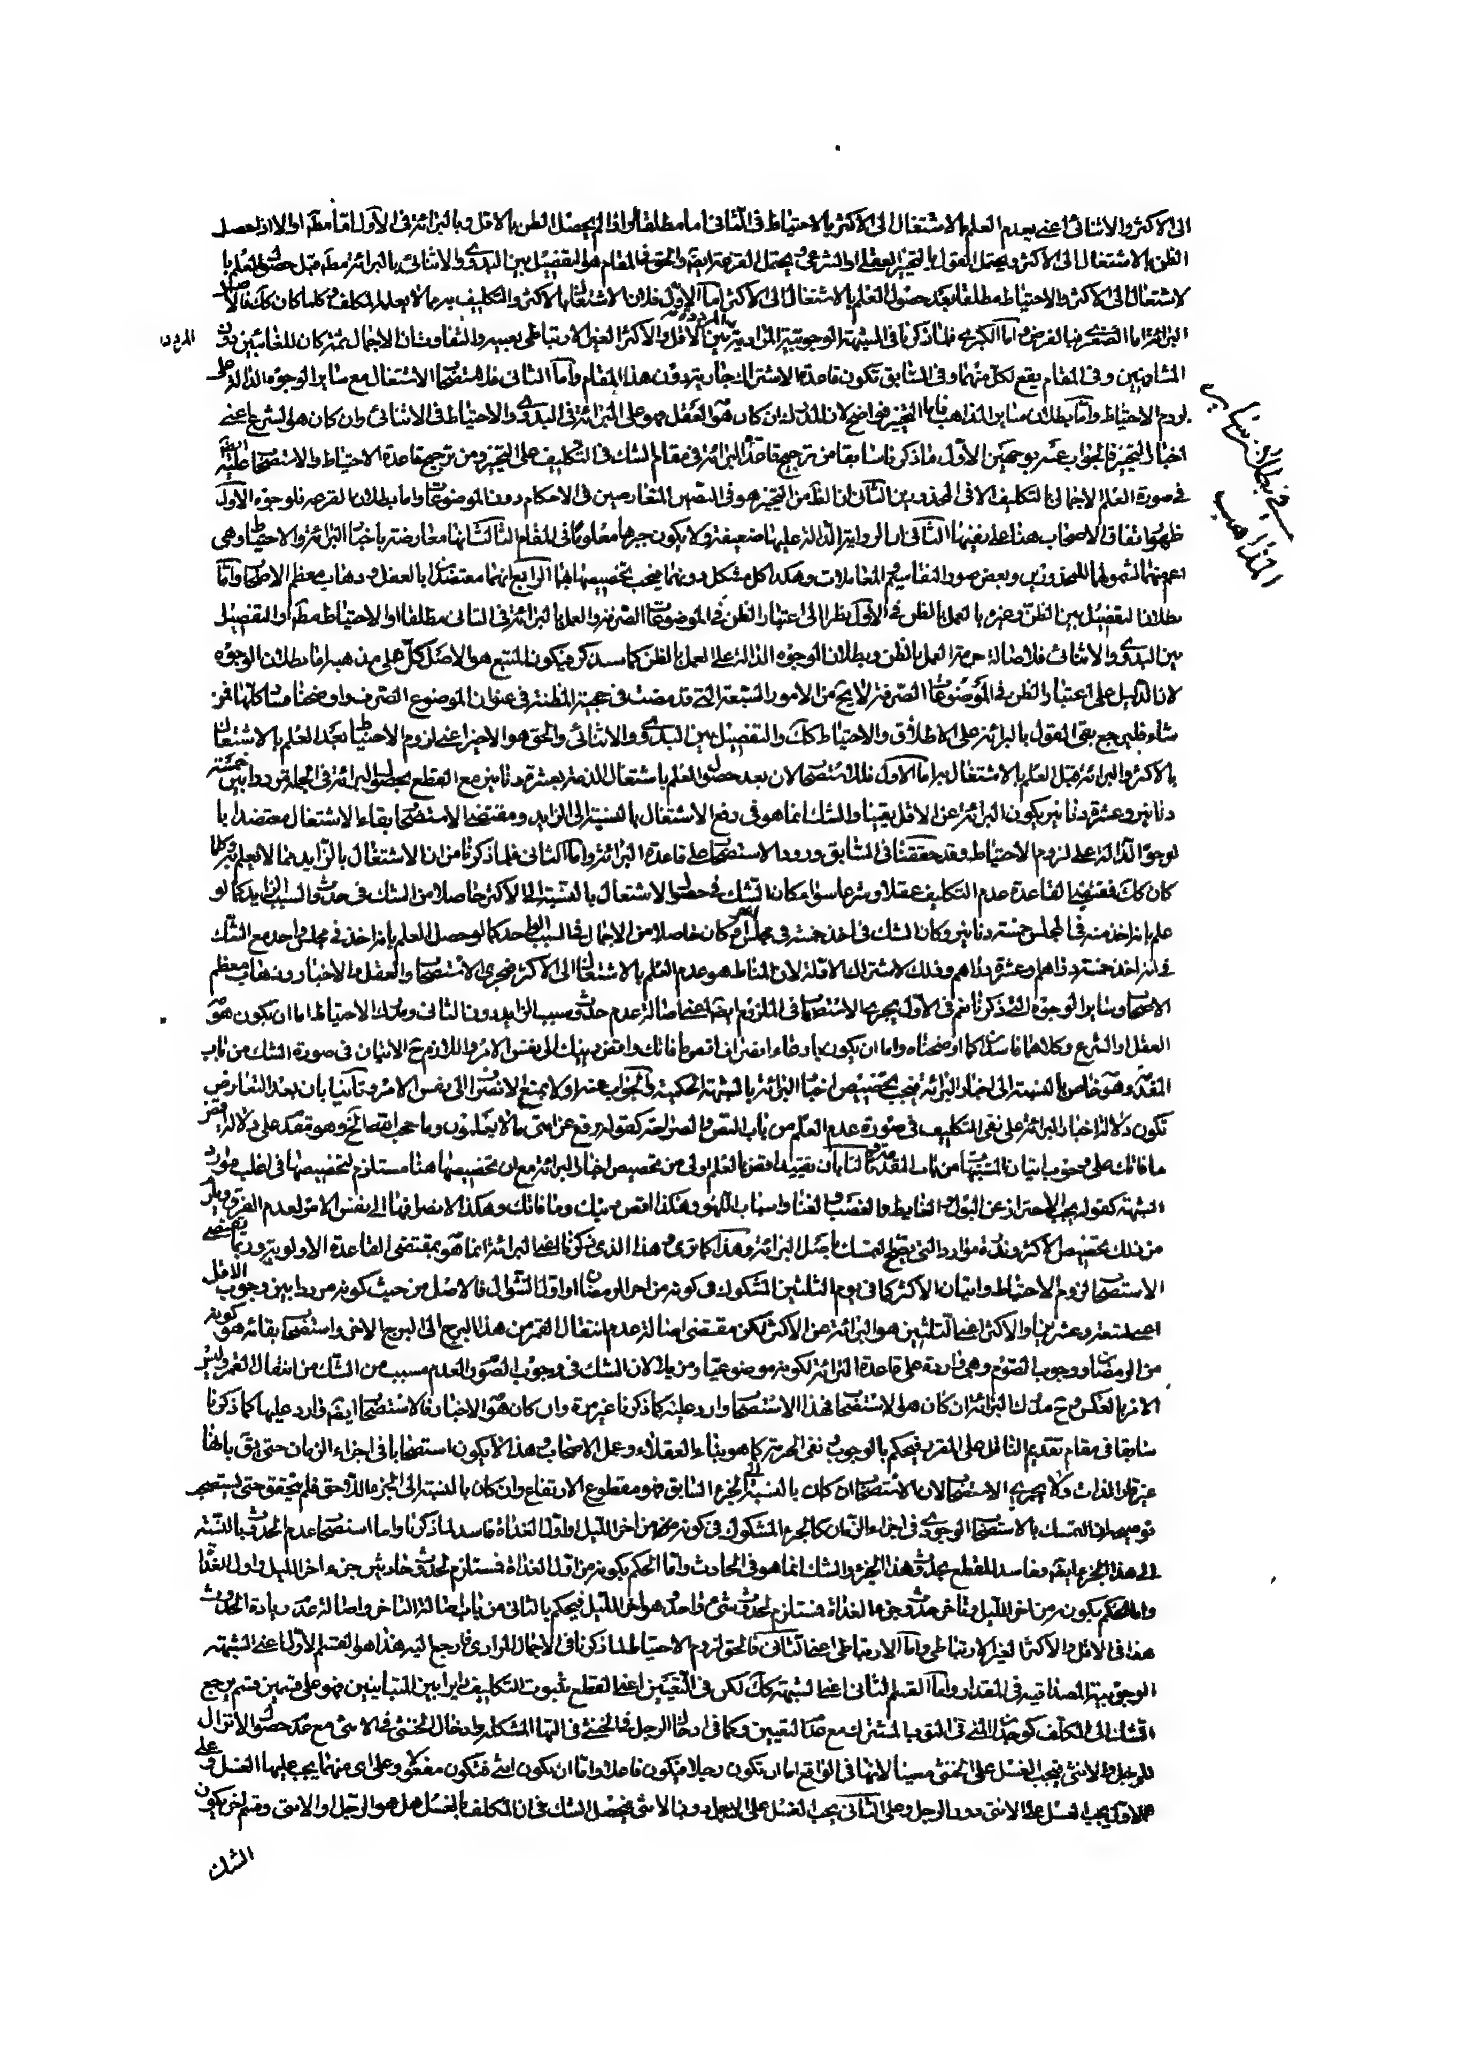 الى الاكثر والاثنائى اعنى بعدم العلم بالاشتغال الى الاكثر بالاحتياط فى الثانى اما مطلقا او اذا لم يحصل الظن بالاقل وبالبرائة فى الاول اما مطـ او الا اذا حصل
الظن بالاشتغال الى الاكثر ويحتمل القول بالتخيير العقلى او الشرعى ويحتمل القرعة ايضا والحق فى المقام هو التفصيل بين البدوى والاثنائى بالبرائة مطـ قبل حصول العلم با
لاشتغال الى الاكثر والاحتياط مطلقا بعد حصول العلم بالاشتغال الى الاكثر اما الاول فلان الاشتغال بالاكثر والتكليف به مما لا يعلمه المكلف وكلما كان كك فالاصل
البرائة اما الصغرى فبالفرض واما الكبرى فلما ذكرنا فى الشبهة الوجوبية المرادية بين الاقل والاكثر الغير الارتباطى بعينه والتفاوت ان الاجمال ثمة كان للغائبين دون
المشافهين وفى المقام يقع لكل منهما وفى السابق تكون قاعدة الاشتراك جارية دون هذا المقام واما الثانى فلاستصحاب الاشتغال مع ساير الوجوه الدالة على
لزوم الاحتياط واما بطلان ساير المذاهب فاما التخيير فواضح لان المدرك ان كان هو العقل فهو على البرائة فى البدوى والاحتياط فى الاثنائى وان كان هو الشرع اعنى
اخبار التخيير فالجواب عنه بوجهين الاول ما ذكرنا سابقا من ترجيح قاعدة البرائة فى مقام الشك فى التكليف على التخيير ومن ترجيح قاعدة الاحتياط والاستصحاب عليه ايضا
فى صورة العلم الاجمالى بالتكليف الا فى المحذورين الثانى ان الظ من التخيير هو فى النصين المتعارضين فى الاحكام دون الموضوعات واما بطلان القرعة فلوجوه الاول
ظهور اتفاق الاصحاب هنا على نفيها الثانى ان الرواية الدالة عليها ضعيفة ولا يكون جبرها معلوما فى المقام الثالث انها معارضة باخبار البرائة والاحتياط وهى
اعم منهما لشمولها للمحذورين وبعض صور التفاسير فى المعاملات وهكذا كل مشكل دونهما فيجب تخصيصها بهما الرابع انهما معتضدان بالعقل وذهاب معظم الاصحاب واما
بطلان التفصيل بين الظن وغيره بالعمل بالظن فى الاول نظرا الى اعتبار الظن فى الموضوعات الصرفة والعمل بالبرائة فى الثانى مطلقا او الاحتياط مطـ او التفصيل
بين البدوى والاثنائى فلاصالة حرمة العمل بالظن وبطلان الوجوه الدالة على العمل بالظن كما سنذكر فيكون المتبع هو الاصل كل على مذهبه اما بطلان الوجوه
لان الدليل على اعتبار الظن فى الموضوعات الصرفة لا يخ من الامور السبعة التى قد مضت فى حجية المظنة فى عنوان الموضوع الصرف واوضحنا مسالكها فمن
شاء فليرجع بقى القول بالبرائة على الاطلاق والاحتياط كك والتفصيل بين البدوى والاثنائى والحق هو الاخير اعنى لزوم الاحتياط بعد العلم بالاشتغال
بالاكثر والبرائة قبل العلم بالاشتغال به اما الاول فللاستصحاب لان بعد حصول العلم باشتغال الذمة بعشرة دنانير مع القطع بحصول البرائة فى الجملة مرددا بين خمسة
دنانير وعشرة دنانير يكون البرائة عن الاقل يقينا والشك انما هو فى رفع الاشتغال بالنسبة الى الزايد ومقتضى الاستصحاب بقاء الاشتغال معتضدا با
لوجوه الدالة على لزوم الاحتياط وقد حققنا فى السابق ورود الاستصحاب على قاعدة البرائة واما الثانى فلما ذكرنا من ان الاشتغال بالزايد مما لا نعلم به وكلما
كان كك فمقتضى القاعدة عدم التكليف عقلا وشرعا سواء كان الشك فى حصول الاشتغال بالنسبة الى الاكثر حاصلا من الشك فى حدوث السبب الزايد كما لو
علم بانه اخذ منه فى المجلس خمسة دنانير وكان الشك فى اخذ خمسة فى مجلس آخر او كان حاصلا من الاجمال فى السبب الواحد كما لو حصل العلم بانه اخذ فى مجلس واحد مع الشك
فى انه اخذ خمسة دراهم او عشرة دراهم وذلك لاشتراك الادلة لان المناط هو عدم العلم بالاشتغال الى الاكثر فيجرى الاستصحاب والعقل والاخبار وذهاب معظم
الاصحاب وساير الوجوه التى ذكرنا نعم فى الاول يجرى الاستصحاب فى الملزوم ايضا اعنى اصالة عدم حدوث سبب الزايد دون الثانى ومدرك الاحتياط اما ان يكون هو
العقل او الشرع وكلاهما فاسد كما اوضحناه واما ان يكون بادعاء انصراف اقض ما فاتك واقض دينك الى نفس الامر واللازم ح الاتيان فى صورة الشك من باب
المقدمة وهو خاص بالنسبة الى اخبار البرائة فيجب تخصيص اخبار البرائة بالشبهة الحكمية والجواب عنه اولا بمنع الانصراف الى نفس الامر وثانيا بان بعد التعارض
تكون دلالة اخبار البرائة على نفى التكليف فى صورة عدم العلم من باب النص والصراحة كقوله رفع عن امتى ما لا يعلمون وما حجب الله الخ وهو مقدم على دلالة اقض
ما فاتك على وجوب اتيان المشتبهات من باب المقدمة وثالثا بان تقييد اقض بالعلم اولى من تخصيص اخبار البرائة مع ان تخصيصها هنا مستلزم لتخصيصها فى اغلب موارد
الشبهة كقوله يجب الاحتراز عن البول والغايط والغصب والغنا واسباب اللهو وهكذا اقض دينك وما فاتك وهكذا لانصرافها الى نفس الامر لعدم الفرق ويلزم
من ذلك تخصيص الاكثر وندرة موارد التى يصح التمسك باصل البرائة وهذا كما ترى وهذا الذى ذكرنا اعنى البرائة انما هو بمقتضى القاعدة الاولوية وربما يقتضى
الاستصحاب لزوم الاحتياط واتيان الاكثر كما فى يوم الثلثين المشكوك فى كونه من آخر رمضان او اول الشوال فالاصل من حيث كونه مرددا بين وجوب الاقل
اعنى تسعة وعشرين او الاكثر اعنى الثلثين هو البرائة عن الاكثر لكن مقتضى اصالة عدم انتقال القمر من هذا البرج الى البرج الاخر واستصحاب بقائه هو كونه
من الرمضان ووجوب الصوم وهى واردة على قاعدة البرائة لكونه موضوعيا ومزيلا لان الشك فى وجوب الصوم والعدم مسبب من الشك من انتقال القمر وليس
الامر بالعكس وح مدرك البرائة ان كان هو الاستصحاب فهذا الاستصحاب وارد عليه كما ذكرنا غير مرة وان كان هو الاخبار فالاستصحاب ايضا وارد عليها كما ذكرنا
سابقا فى مقام تقديم الناقل على المقرر فيحكم بالوجوب ونفى الحرمة كما هو بناء العقلاء وعمل الاصحاب وهذا لا يكون استصحابا فى اجزاء الزمان حتى يق بانها
غير قار الذات ولا يجرى الاستصحاب لان الاستصحاب ان كان بالنسبة الى الجزء السابق فهو مقطوع الارتفاع وان كان بالنسبة الى الجزء اللاحق فلم يتحقق حتى يستصحب
توضيحه ان التمسك بالاستصحاب الوجودى فى اجزاء الزمان كالجزء المشكوك فى كونه من آخر الليل او اول الغداة فاسد لما ذكرنا واما استصحاب عدم الحدوث بالنسبة
الى هذا الجزء ايضا فاسد للقطع بحدوث هذا الجزء والشك انما هو فى الحادث واما الحكم بكونه من اول الغداة فمستلزم لحدوث حادثين جزء آخر الليل واول الغداة
واما الحكم بكونه من آخر الليل وتأخر حدوث جزء الغداة فمستلزم لحدوث شىء واحد وهو آخر الليل فيحكم بالثانى من باب اصالة التأخر واصالة عدم زيادة الحدوث
هذا فى الاقل والاكثر الغير الارتباطى واما الارتباطى اعنى الثانى فالحق لزوم الاحتياط لما ذكرنا فى الاجمال المرادى فارجع اليه هذا هو القسم الاول اعنى الشبهة
الوجوبية المصداقية فى المقدار واما القسم الثانى اعنى الشبهة كك لكن فى التعيين اعنى القطع بثبوت التكليف دايرا بين المتباينين فهو على قسمين قسم يرجع
الشك الى المكلف كوجدان المنى فى الثوب المشترك مع عدم التعيين وكما فى ادخال الرجل فى الخنثى فى آلتها المشكلة وادخال الخنثى فى الانثى مع عدم حصول الانزال
للرجل والانثى فيجب الغسل على خنثى معينا لانها فى الواقع اما ان تكون رجلا فيكون فاعلا واما ان يكون انثى فتكون مفعولا وعلى اى منهما يجب عليها الغسل وعلى
الاول يجب الغسل على الانثى دون الرجل وعلى الثانى يجب الغسل على الرجل دون الانثى فيحصل الشك فى ان المكلف بالغسل هل هو الرجل او الانثى وقسم آخر يكون
الشك
فى بطلان ساير
المذاهب